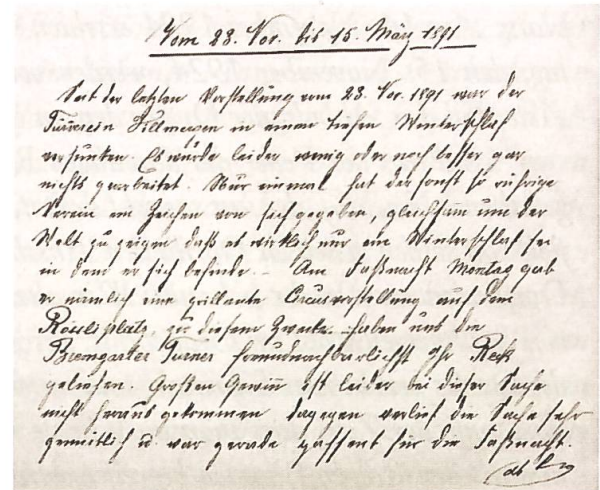 Vom 23. Nov. bis 15. März 1891
Seit der letzten Vorstellung vom 23. Nov. 1891 war der
Turnverein in einen tiefen Winterschlaf
versunken Es wurde leider wenig oder noch besser gar
nichts gearbeitet. Nur einmal hat der sonst so rührige
Verein ein Zeichen von sich gegeben, gleichsam um der
Welt zu zeigen daß es wirklich nur ein Winterschlaf sei
in dem er sich befinde. Am Faßnacht Montag gab
er nämlich eine brillante Circusvorstellung auf dem
Rössliplatz, zu diesem Zwecke haben uns die
Bremgarter Turner freundnachbarlichst Ihr Reck
geliehen. Großen Gewinn ist leider bei dieser Sache
nicht heraus gekommen, dagegen verlief die Sache sehr
gemütlich u. war gerade passent für die Faßnacht.